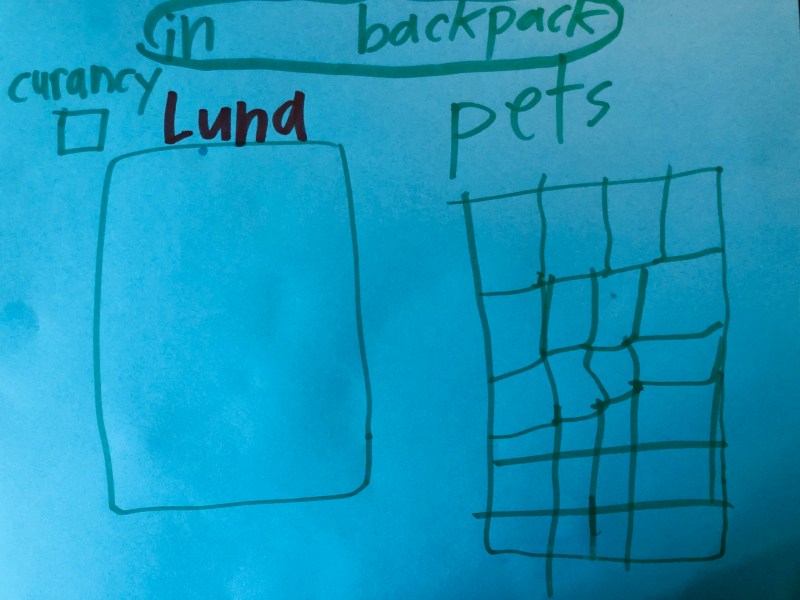 in backpack
curancy
Luna
pets